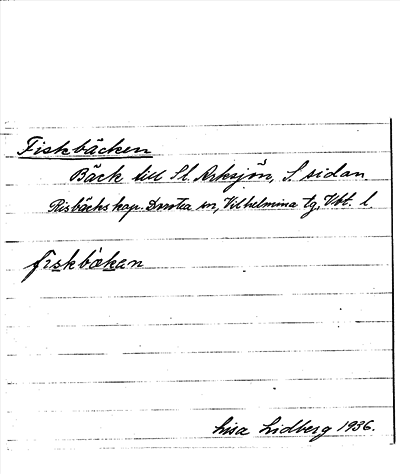 Fiskbäcken
Bäck till St. Arksjön, S. sidan.
Risbäcks kap. Dorotea sn, Vilhelmina tg. Vbt. l
fiskbäkan
Lisa Lidberg 1936.